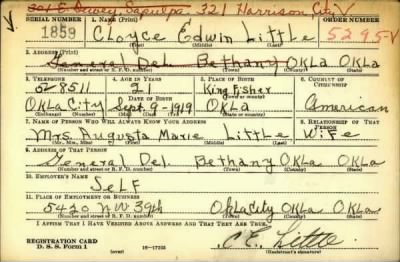 301 E Dewey, Sapulpa 321 Harrison City V
SERIAL NUMBER 1. NAME (Print) ORDER NUMBER
1859 Cloyce Edwin Little 5295V
(First) (Middle) (Last)
2. ADDRESS (Print)
General Del. Bethany Okla Okla
(Number and street or R. F. D. number) (Town) (County) (State)
3. TELEPHONE 4. AGE IN YEARS 5. PLACE OF BIRTH 6. COUNTRY OF CITIZENSHIP
528511 21 Kingfisher
DATE OF BIRTH (Town or county)
Okla City Sept. 9-1919 Okla American
(Exchange) (Number) (Mo.) (Day) (Yr.) (State or country)
7. NAME OF PERSON WHO WILL ALWAYS KNOW YOUR ADDRESS 8. RELATIONSHIP OF THAT PERSON
Mrs. Augusta Marie Little Wife
(Mr., Mrs., Miss) (First) (Middle) (Last)
9. ADDRESS OF THAT PERSON
General Del. Bethany Okla Okla
(Number and street or R. F. D. number) (Town) (County) (State)
10. EMPLOYER'S NAME
Self
11. PLACE OF EMPLOYMENT OR BUSINESS
5420 NW 39th Okla City Okla Okla
(Number and street or R. F. D. number) (Town) (County) (State)
I AFFIRM THAT I HAVE VERIFIED ABOVE ANSWERS AND THAT THEY ARE TRUE.
REGISTRATION CARD
D. S. S. Form 1 (over) 16-17105 C.E. Little
(Registrant's signature)